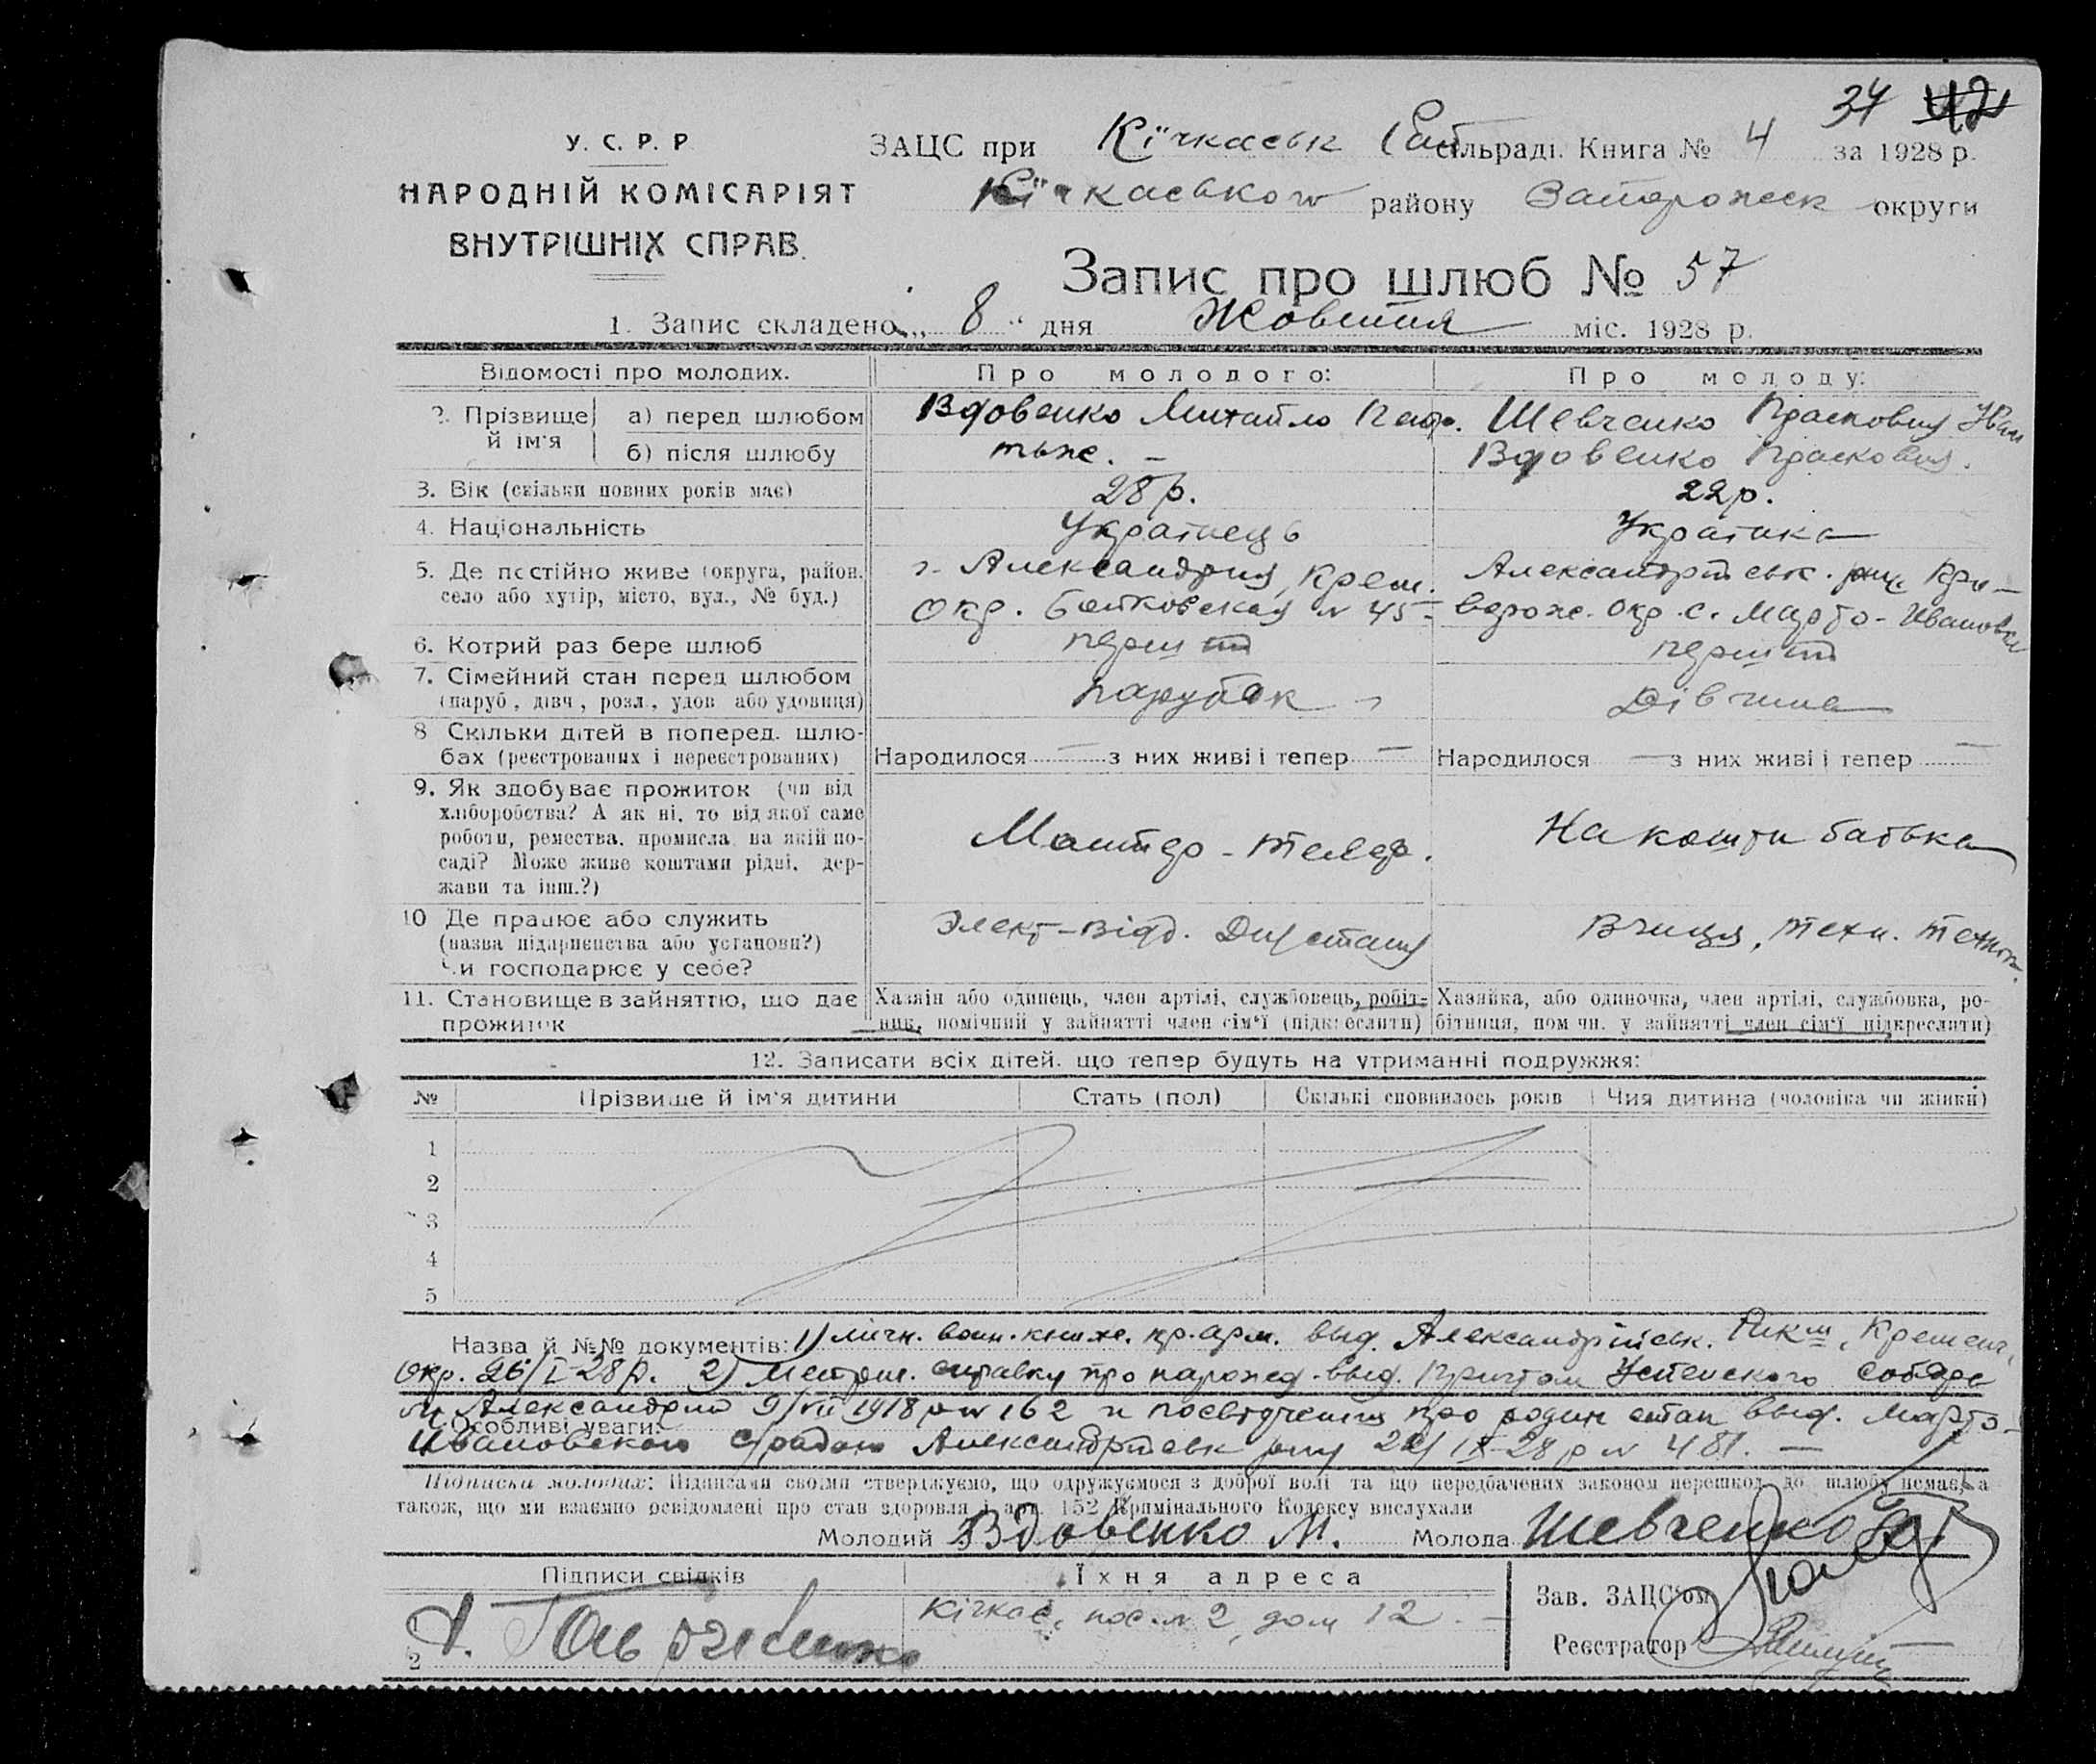 34 42
У. С. Р. Р.
НАРОДНІЙ КОМІСАРІЯТ
ВНУТРІШНІХ СПРАВ.
ЗАЦС при Кічкаськ сільраді. Книга № 4 за 1928 р.
Кічкаськом району Запорожск округи
Запис про шлюб № 57
1. Запис складено „ 8 “ дня Жовтня міс. 1928 р.
Відомості про молодих. Про молодого: Про молоду:
2. Прізвище й ім'я
а) перед шлюбом Вдовенко Михайло Шевченко Прасковия Иван
б) після шлюбу тоже. — Вдовенко Прасковия.
3. Вік (скільки повних років має) 28 р. 22 р.
4. Національність Українець Українка
5. Де постійно живе (округа, район, г. Александрия, Крем. Александрійськ. Кри-
село або хутір, місто, вул., № буд.) окр. № 45 — ворожс. окр. с. Марто-Ивановка
6. Котрий раз бере шлюб перший перший
7. Сімейний стан перед шлюбом
(паруб., дівч., розл., удов. або удовиця) парубок Дівчина
8. Скільки дітей в поперед. шлю-
бах (реєстрованих і нереєстрованих) Народилося — з них живі і тепер — Народилося — з них живі і тепер —
9. Як здобуває прожиток (чи від
хліборобства? А як ні, то від якої саме
роботи, ремества, промисла, на якій по-
саді? Може живе коштами рідні, дер-
жави та інш.?)
Монтер-телеф. На кошти батька
10. Де працює або служить
(назва підприємства або установи?)
Чи господарює у себе?
Элект-відд. Вчиця, техн.
11. Становище в зайняттю, що дає
прожиток
Хазяїн або одинець, член артілі, службовець, робіт-
ник, помічний у зайнятті член сім'ї (підкреслити)
Хазяйка, або одиночка, член артілі, службовка, ро-
бітниця, пом чн. у зайнятті член сім'ї підкреслити)
12. Записати всіх дітей, що тепер будуть на утриманні подружжя:
№ Прізвище й ім'я дитини Стать (пол) Скількі сповнилось років Чия дитина (чоловіка чи жінки)
1
2
3
4
5
Назва й №№ документів: 1) личн. воин. книж. кр. арм. выд. Александрійськ. Кременч.
окр. 26/I-28 р. 2) Метрич. справку про нарожд. выд. Причтом Успенского собора
Александрии 9/VII 1918 р № 162 и посвідчення про родин стан выд. Марто-
Особливі уваги:
Ивановскою с/радою Александрійськ 22/IX-28 р № 481. —
Підписи молодих: Підписами своїми стверджуємо, що одружуємося з доброї волі та що передбачених законом перешкод до шлюбу немає, а
також, що ми взаємно освідомлені про став здоровля і арт. 152 Кримінального Кодексу вислухали
Молодий Вдовенко М. Молода Шевченко
Підписи свідків Їхня адреса
Кічкас, пос. № 2, дом 12. —
2
Зав. ЗАЦС'ом
Реєстратор